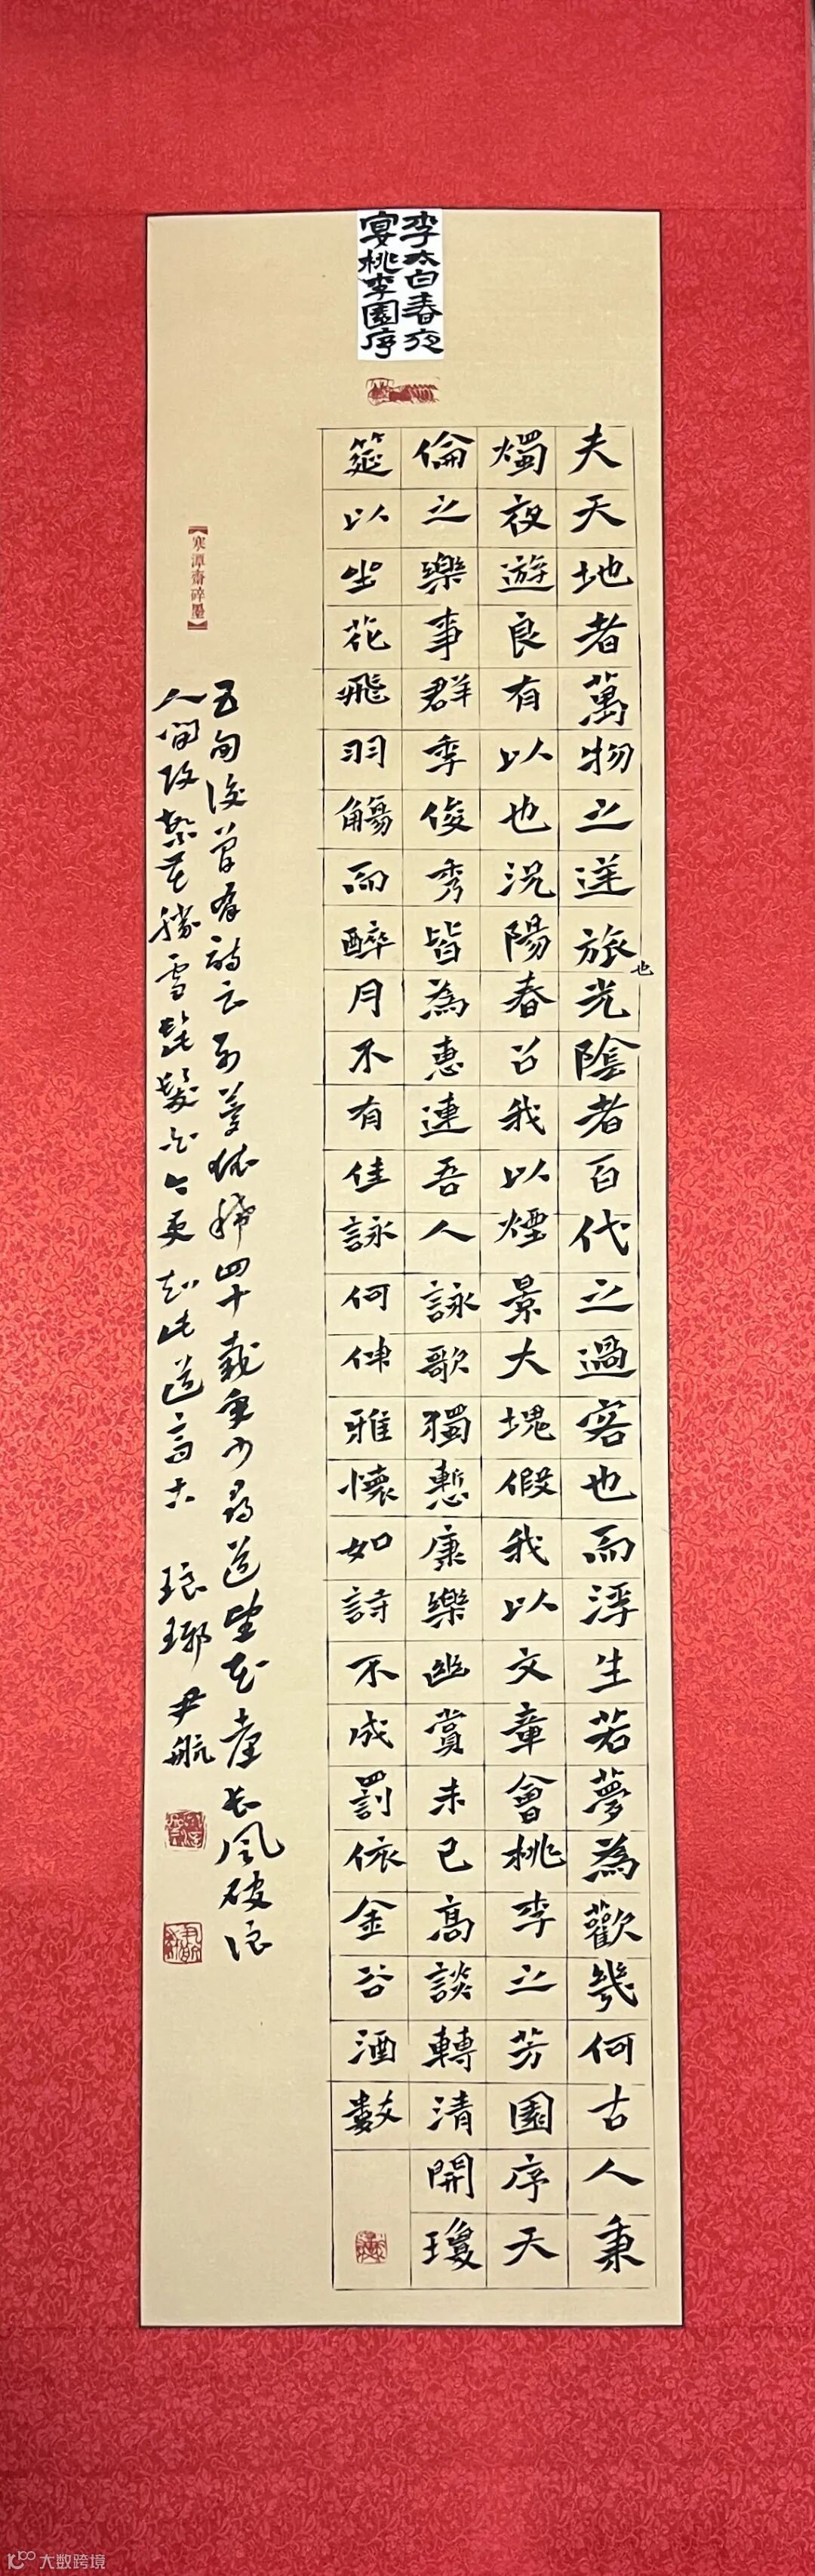 李太白春夜
宴桃李園序
夫天地者萬物之逆旅也光陰者百代之過客也而浮生若夢為歡幾何古人秉
燭夜遊良有以也況陽春召我以煙景大塊假我以文章會桃李之芳園序天
倫之樂事群季俊秀皆為惠連吾人詠歌獨慙康樂幽賞未已高談轉清開瓊
筵以坐花飛羽觴而醉月不有佳詠何伸雅懷如詩不成罰依金谷酒數
【寒潭齋碎墨】
五旬後曾有詩云別夢依稀四十載尋道崖長風破浪
人間改勝雪髭髮今更知此道高古 琅琊尹航
大数跨境